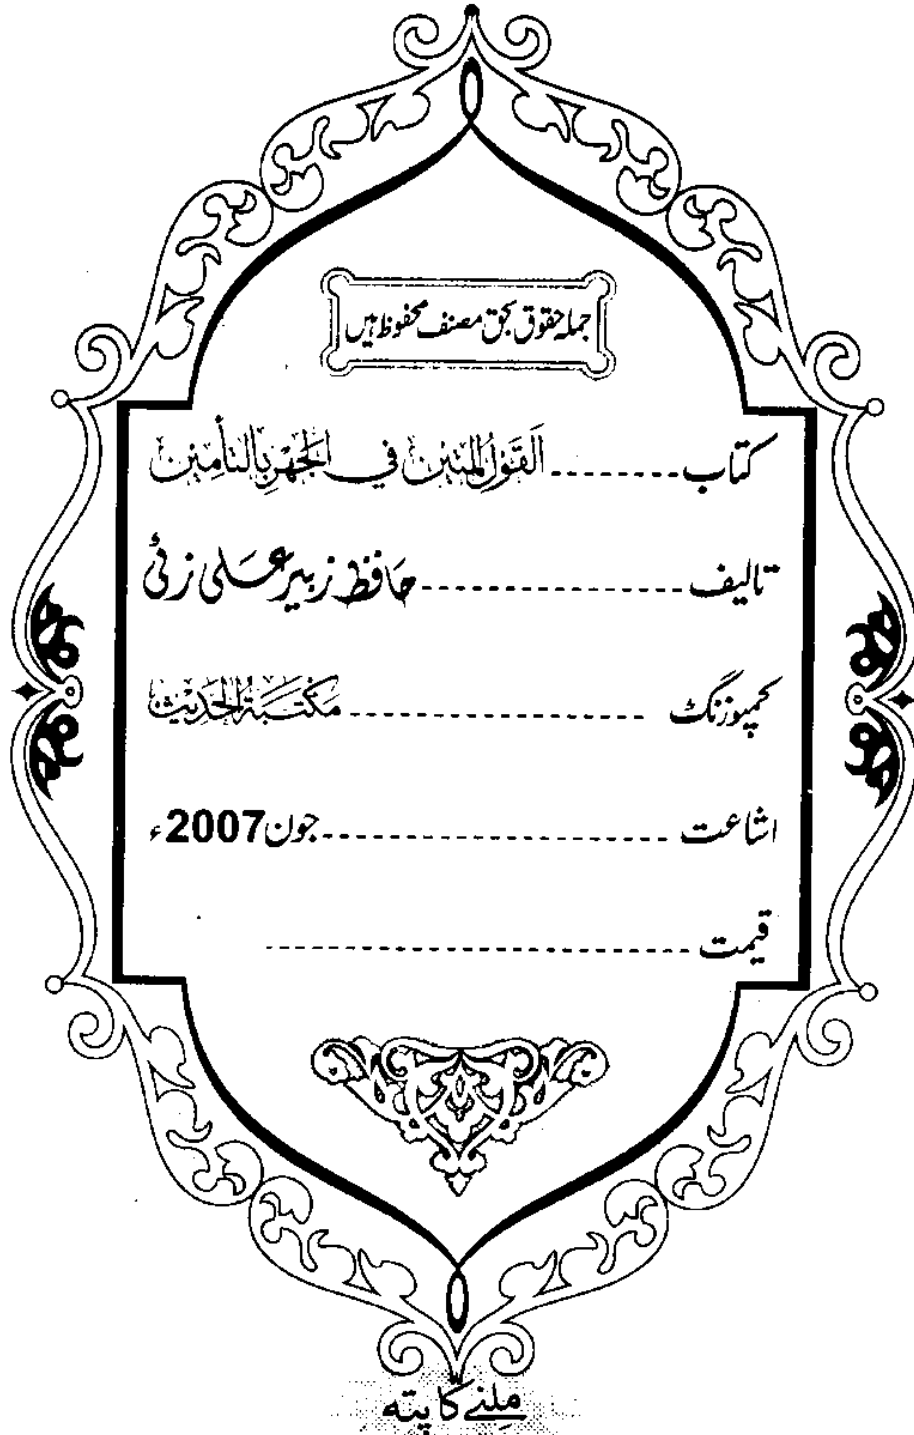 جملہ حقوق بحق مصنف محفوظ ہیں
کتاب ........ اَلقَولُ المَتِین فی الجَہرِ بِالتأمِین
تالیف ................ حافظ زبیر علی زئی
کمپوزنگ ................ مکتبۃ الحدیث
اشاعت ................ جون 2007ء
قیمت ................
ملنے کا پتہ